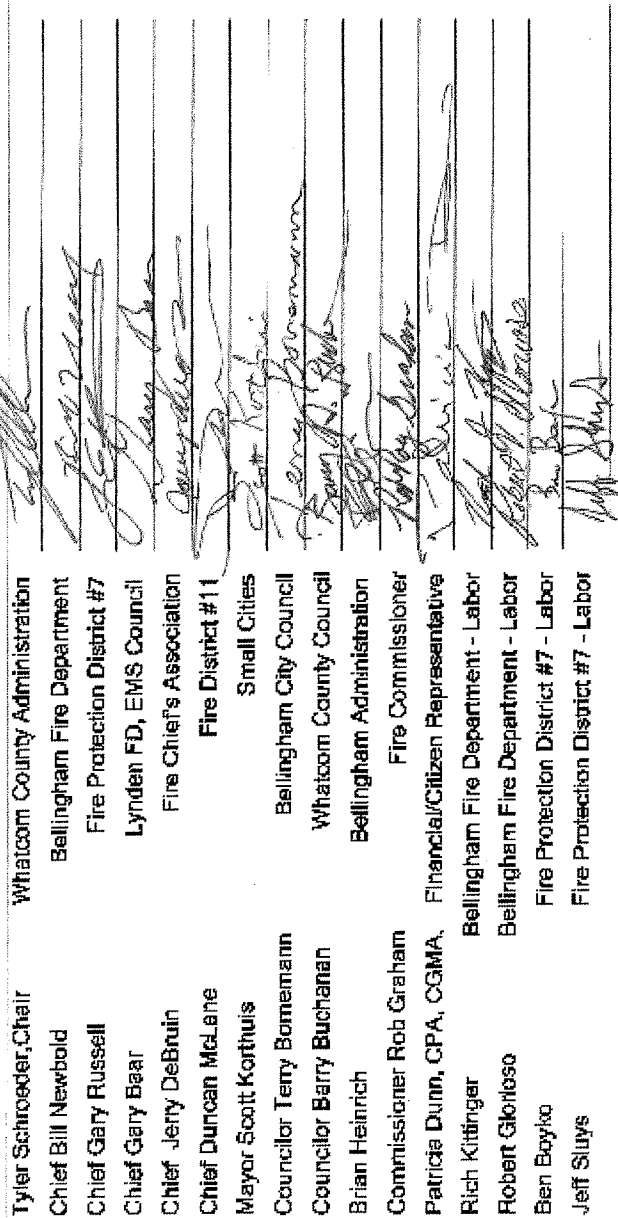 Tyler Schroeder,Chair Whatcom County Administration
Chief Bill Newbold Bellingham Fire Department
Chief Gary Russell Fire Protection District #7
Chief Gary Baar Lynden FD, EMS Council
Chief Jerry DeBruin Fire Chief's Association
Chief Duncan McLane Fire District #11
Mayor Scott Korthuis Small Cities Scott Korthuis
Councilor Terry Bornemann Bellingham City Council Terry Bornemann
Councilor Barry Buchanan Whatcom County Council
Brian Heinrich Bellingham Administration
Commissioner Rob Graham Fire Commissioner
Patricia Dunn, CPA, CGMA, Financial/Citizen Representative
Rich Kittinger Bellingham Fire Department - Labor
Robert Glorioso Bellingham Fire Department - Labor
Ben Boyko Fire Protection District #7 - Labor
Jeff Sluys Fire Protection District #7 - Labor Jeff Sluys